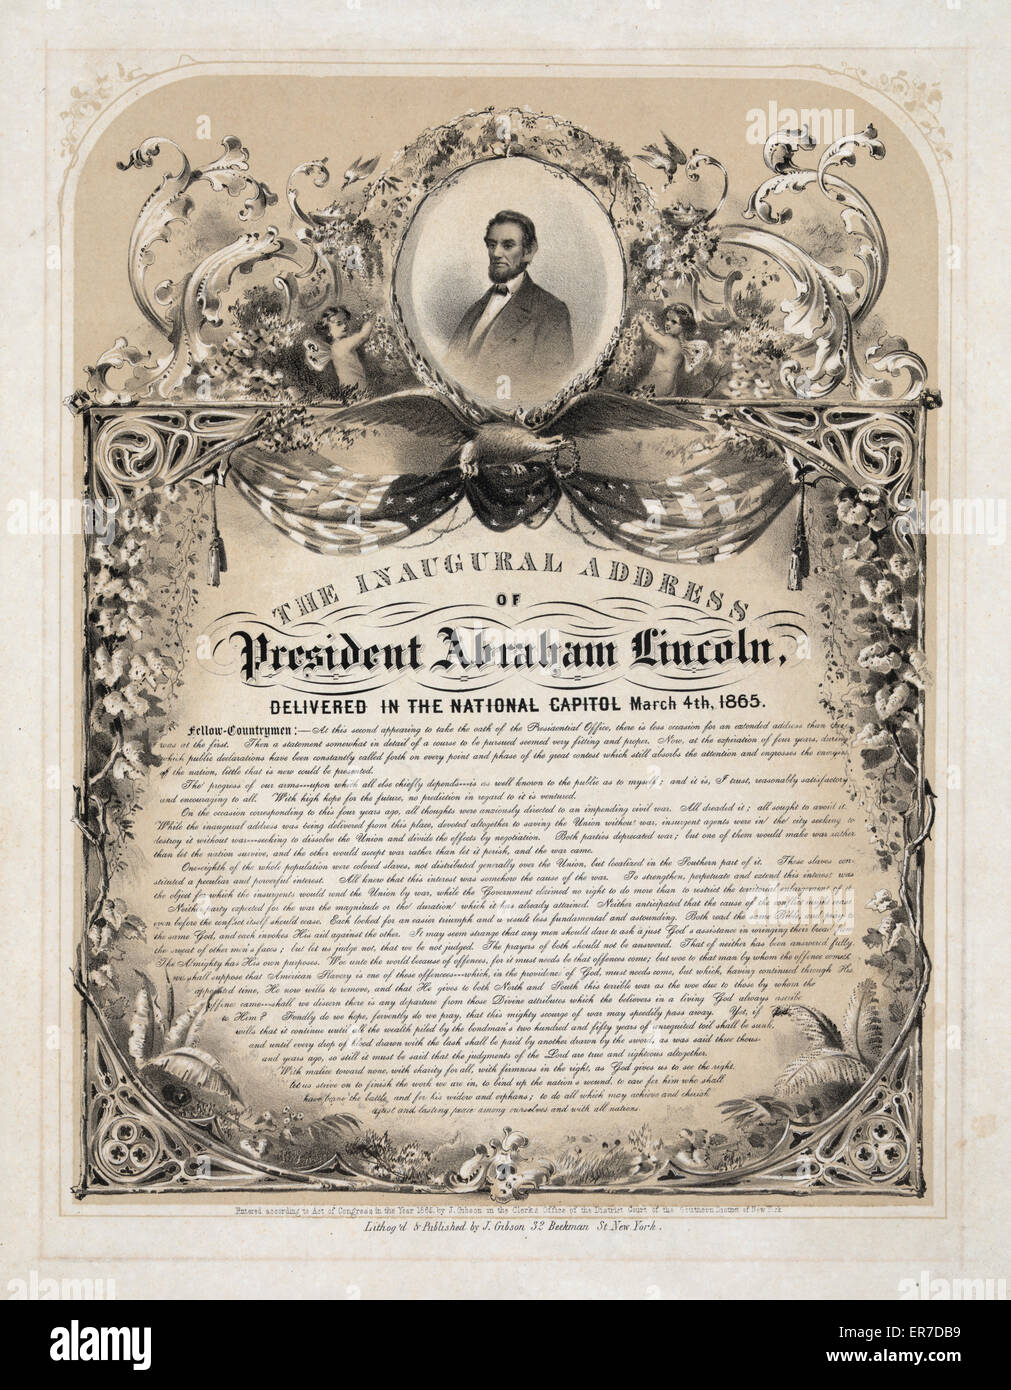 THE INAUGURAL ADDRESS
OF
President Abraham Lincoln,
DELIVERED IN THE NATIONAL CAPITOL March 4th, 1865.
Fellow-Countrymen:—At this second appearing to take the oath of the Presidential Office, there is less occasion for an extended address than there
was at the first. Then a statement somewhat in detail of a course to be pursued seemed very fitting and proper. Now, at the expiration of four years, during
which public declarations have been constantly called forth on every point and phase of the great contest which still absorbs the attention and engrosses the energies
of the nation, little that is new could be presented.
The progress of our arms---upon which all else chiefly depends---is as well known to the public as to myself; and it is, I trust, reasonably satisfactory
and encouraging to all. With high hope for the future, no prediction in regard to it is ventured.
On the occasion corresponding to this four years ago, all thoughts were anxiously directed to an impending civil war. All dreaded it; all sought to avoid it.
While the inaugural address was being delivered from this place, devoted altogether to saving the Union without war, insurgent agents were in the city seeking to
destroy it without war---seeking to dissolve the Union and divide the effects by negotiation. Both parties deprecated war; but one of them would make war rather
than let the nation survive, and the other would accept war rather than let it perish, and the war came.
One-eighth of the whole population were colored slaves, not distributed generally over the Union, but localized in the Southern part of it. These slaves con-
stituted a peculiar and powerful interest. All knew that this interest was somehow the cause of the war. To strengthen, perpetuate and extend this interest was
the object for which the insurgents would rend the Union by war, while the Government claimed no right to do more than to restrict the territorial enlargement of it.
Neither party expected for the war the magnitude or the duration which it has already attained. Neither anticipated that the cause of the conflict might cease
even before the conflict itself should cease. Each looked for an easier triumph and a result less fundamental and astounding. Both read the same Bible and pray to
the same God, and each invokes His aid against the other. It may seem strange that any men should dare to ask a just God's assistance in wringing their bread from
the sweat of other men's faces; but let us judge not, that we be not judged. The prayers of both should not be answered. That of neither has been answered fully.
The Almighty has His own purposes. Woe unto the world because of offences, for it must needs be that offences come; but woe to that man by whom the offence cometh.
we shall suppose that American Slavery is one of these offences---which, in the providence of God, must needs come, but which, having continued through His
appointed time, He now wills to remove, and that He gives to both North and South this terrible war as the woe due to those by whom the
offence came---shall we discern there is any departure from those Divine attributes which the believers in a living God always ascribe
to Him? Fondly do we hope, fervently do we pray, that this mighty scourge of war may speedily pass away. Yet, if God
wills that it continue until all the wealth piled by the bondman's two hundred and fifty years of unrequited toil shall be sunk,
and until every drop of blood drawn with the lash shall be paid by another drawn by the sword, as was said three thous-
and years ago, so still it must be said that the judgments of the Lord are true and righteous altogether.
With malice toward none, with charity for all, with firmness in the right, as God gives us to see the right,
let us strive on to finish the work we are in, to bind up the nation's wound, to care for him who shall
have borne the battle, and for his widow and orphans; to do all which may achieve and cherish
a just and lasting peace among ourselves and with all nations.
Entered according to Act of Congress in the Year 1865, by J. Gibson in the Clerks Office of the District Court of the Southern District of New York
Lithog'd & Published by J. Gibson 32 Beekman St. New York.
alamy
Image ID: ER7DB9
www.alamy.com